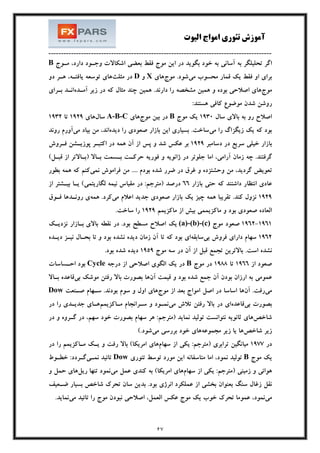 آموزش تئوری امواج الیوت
FXPARS
اگر تحلیلگر به آسانی به خود بگوید در این موج فقط بعضی اشکالات وجود دارد، موج B
برای او فقط یک قمار محسوب می‌شود. موج‌های X و D در مثلث‌های توسعه یافته، هر دو
موج‌های اصلاحی بوده و همین مشخصه را دارند. همین چند مثال که در زیر آمده‌اند برای
روشن شدن موضوع کافی هستند:
اصلاح رو به بالای سال ۱۹۳۰ یک موج B در بین موج‌های A-B-C سال‌های ۱۹۲۹ تا ۱۹۳۲
بود که یک زیگزاگ را می‌ساخت. بسیاری این بازار صعودی را دیده‌اند. من بیاد می‌آورم روند
بازار خیلی سریع در دسامبر ۱۹۲۹ بر عکس شد و پس از آن همه در اکتبر پوزیشن فروش
گرفتند. چه زمان آرامی، اما جلوتر در ژانویه و فوریه حرکت بسمت بالا (بالاتر از قبل)
تعویض گردید. من وحشتزده و غرق در ضرر شده بودم ... من فراموش نمی‌کنم که همه بطور
عادی انتظار داشتند که حتی بازار ۶۶ درصد (مترجم: در مقیاس نیمه لگاریتمی) یا بیشتر از
۱۹۲۹ نزول کند. تقریبا همه چیز یک بازار صعودی جدید اعلام می‌کرد. همه‌ی روندها فوق
العاده صعودی بود و ماکزیممی بیش از ماکزیمم ۱۹۲۹ را ساخت.
۱۹۶۱-۱۹۶۲ صعود موج (a)-(b)-(c) یک اصلاح مسطح بود. در نقطه بالای بازار نزدیک
۱۹۶۲ سهام دارای فروش بی‌سابقه‌ای بود که تا آن زمان دیده نشده بود و تا بحال نیز دیده
نشده است. بالاترین تجمع قبل از آن در سه موج ۱۹۴۹ دیده شده بود.
صعود از ۱۹۶۶ تا ۱۹۸۸ در موج B در یک الگوی اصلاحی از درجه Cycle بود احساسات
عمومی به ارزان بودن آن جمع شده بود و قیمت آن‌ها بصورت بالا رفتن موشک بی‌قاعده بالا
می‌رفت. آن‌ها اساسا در اصل امواج بعد از موج‌های اول و سوم بودند. سهام صنعت Dow
بصورت بی‌قاعده‌ای در بالا رفتن تلاش می‌نمود و سرانجام ماکزیمم‌های جدیدی را در
شاخص‌های ثانویه نتوانست تولید نماید (مترجم: هر سهام بصورت خود سهم، در گروه و در
زیر شاخص‌ها یا زیر مجموعه‌های خود بررسی می‌شود.)
در ۱۹۷۷ میانگین ترابری (مترجم: یکی از سهام‌های امریکا) بالا رفت و یک ماکزیمم را در
یک موج B تولید نمود، اما متاسفانه این مورد توسط تئوری Dow تائید نمی‌گردد: خطوط
هوائی و زمینی (مترجم: یکی از سهام‌های امریکا) به کندی عمل می‌نمود تنها ریل‌های حمل و
نقل زغال سنگ بعنوان بخشی از عملکرد انرژی بود. بدین سان تحرک شاخص بسیار ضعیف
می‌نمود، عموما تحرک خوب یک موج عکس العمل، اصلاحی نبودن موج را تائید می‌نماید.
۴۷